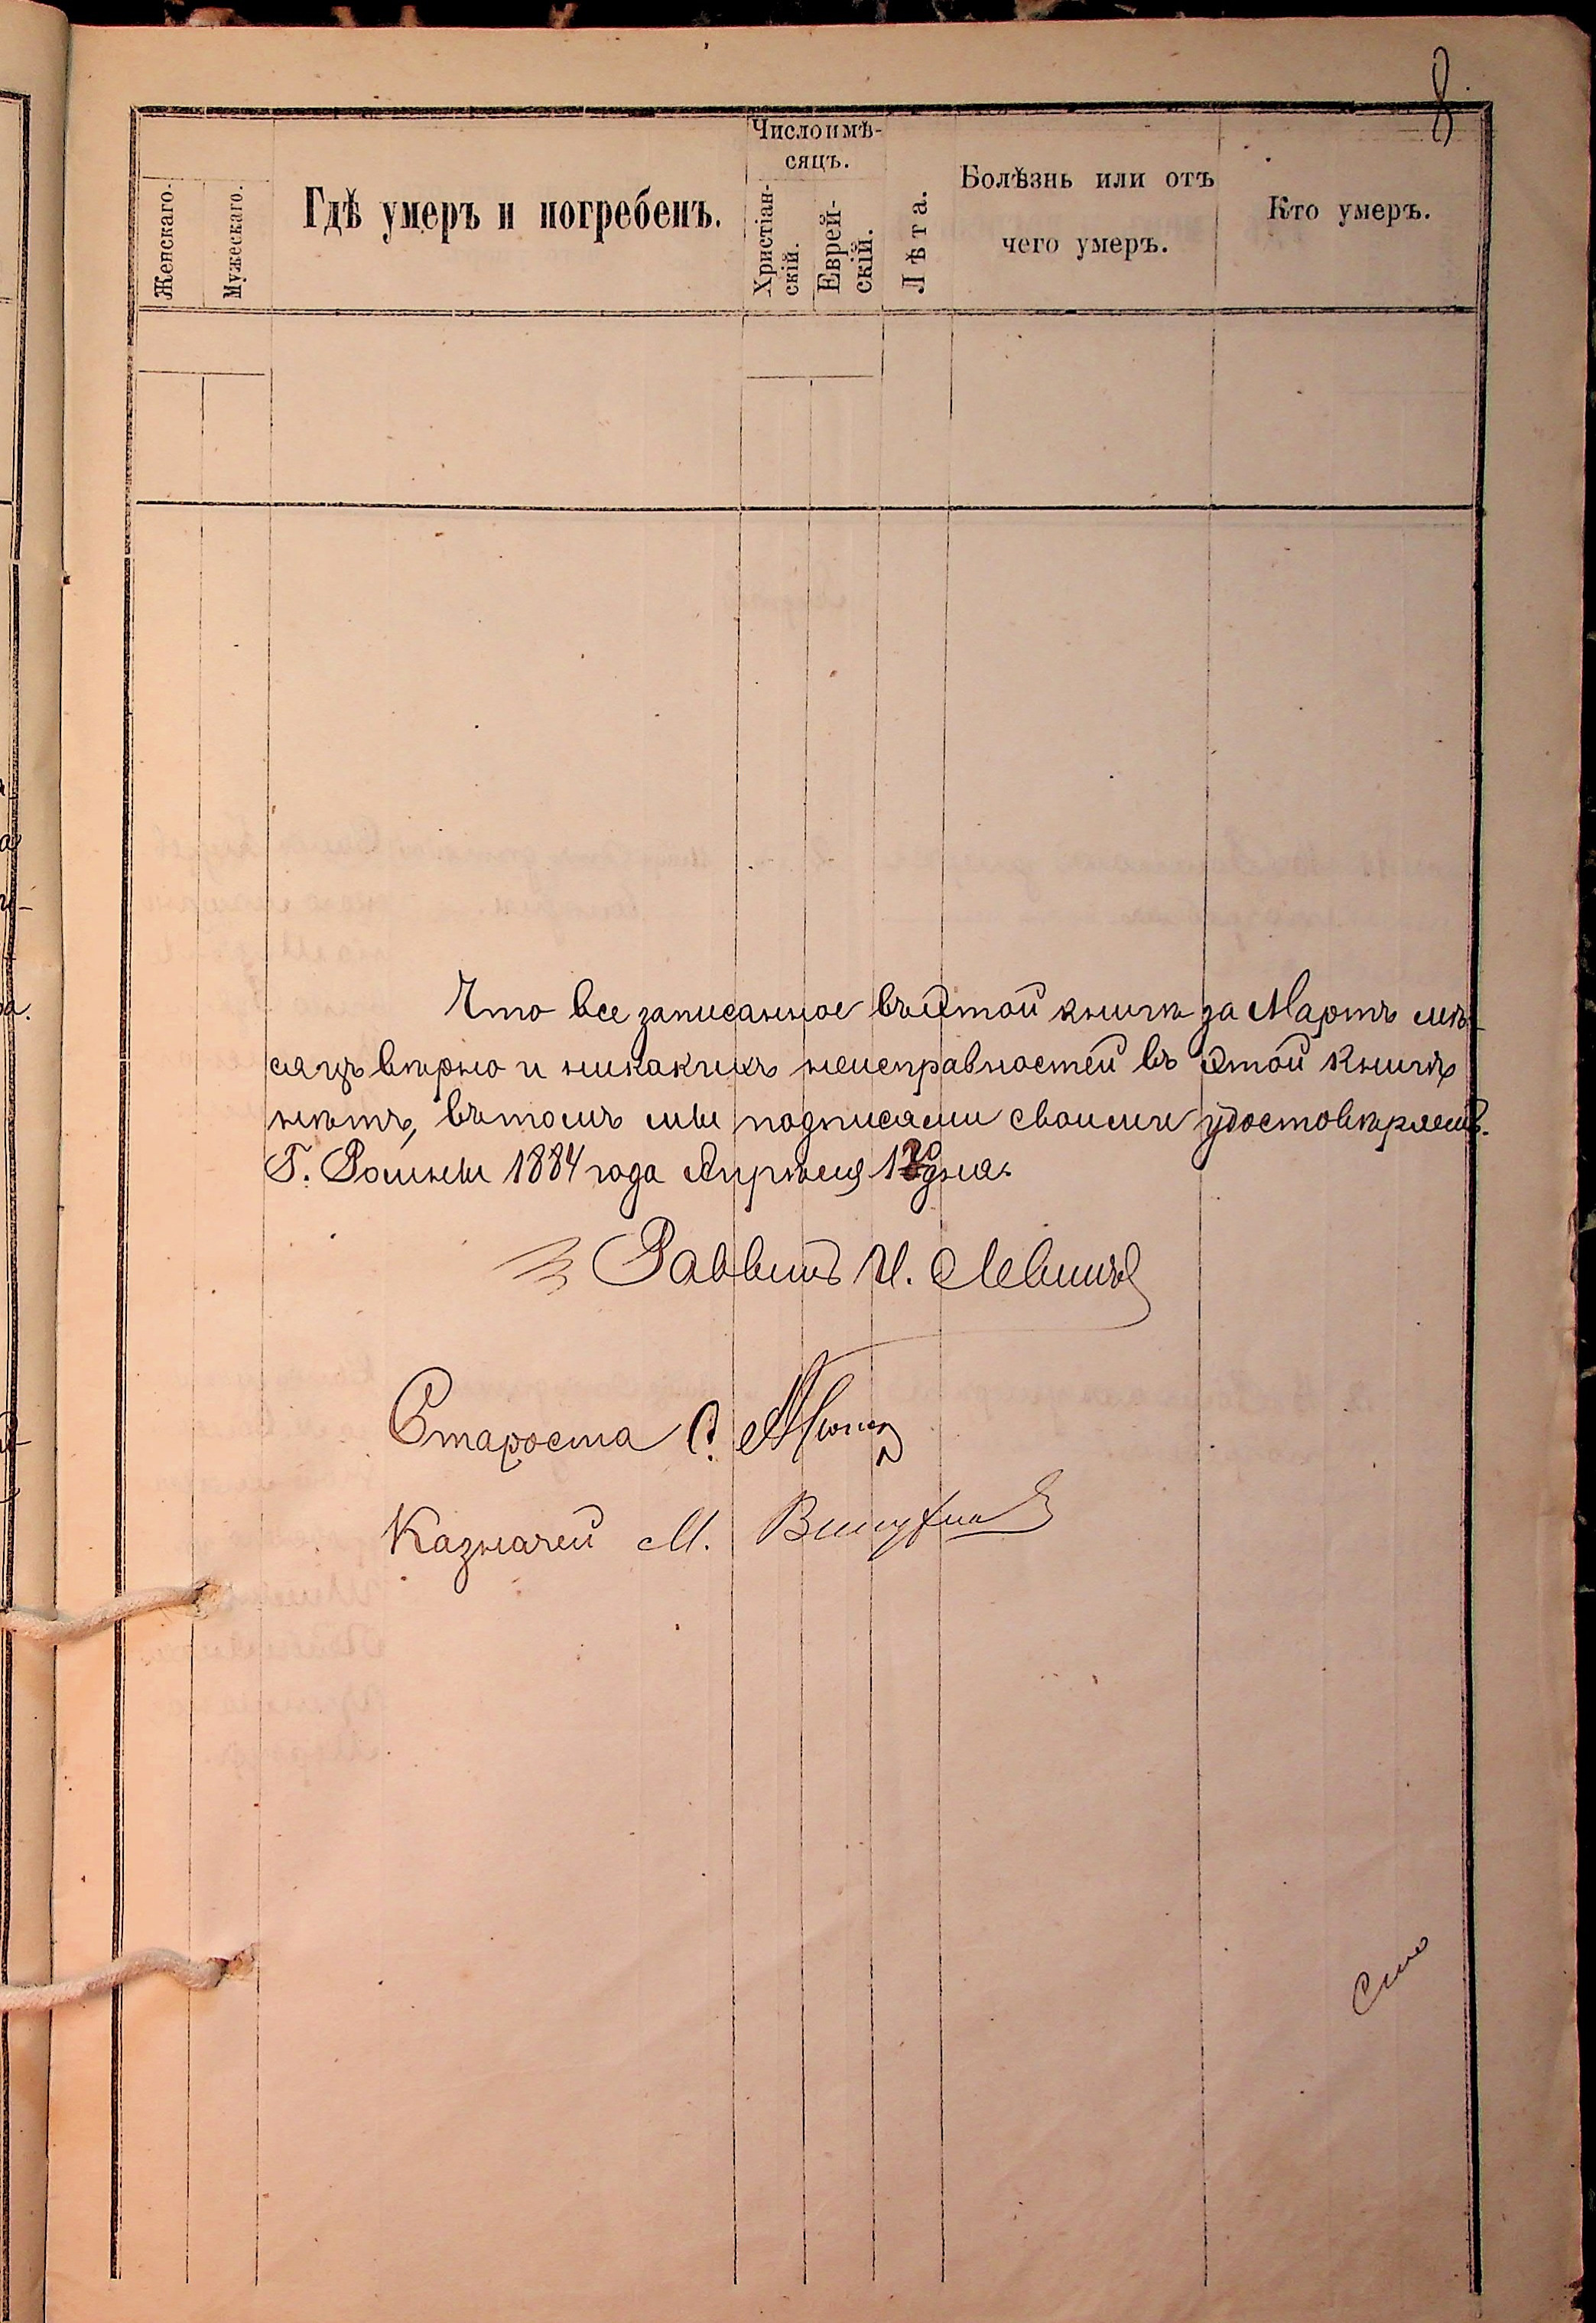 8
Число и мѣ-
сяцъ.
Женскаго.
Мужескаго.
Гдѣ умеръ и погребенъ.
Христіан-
скій.
Еврей-
скій.
Лѣта.
Болѣзнь или отъ
чего умеръ.
Кто умеръ.
Что все записанное въ этой книгѣ за Мартъ мѣ-
сяцъ вѣрно и никакихъ неисправностей въ этой книгѣ
нѣтъ, въ томъ мы подписями своими удостовѣряемъ.
Г. Ромны 1884 года Апрѣля дня.
Раввинъ И. Левинъ
Староста С.
Казначей М.